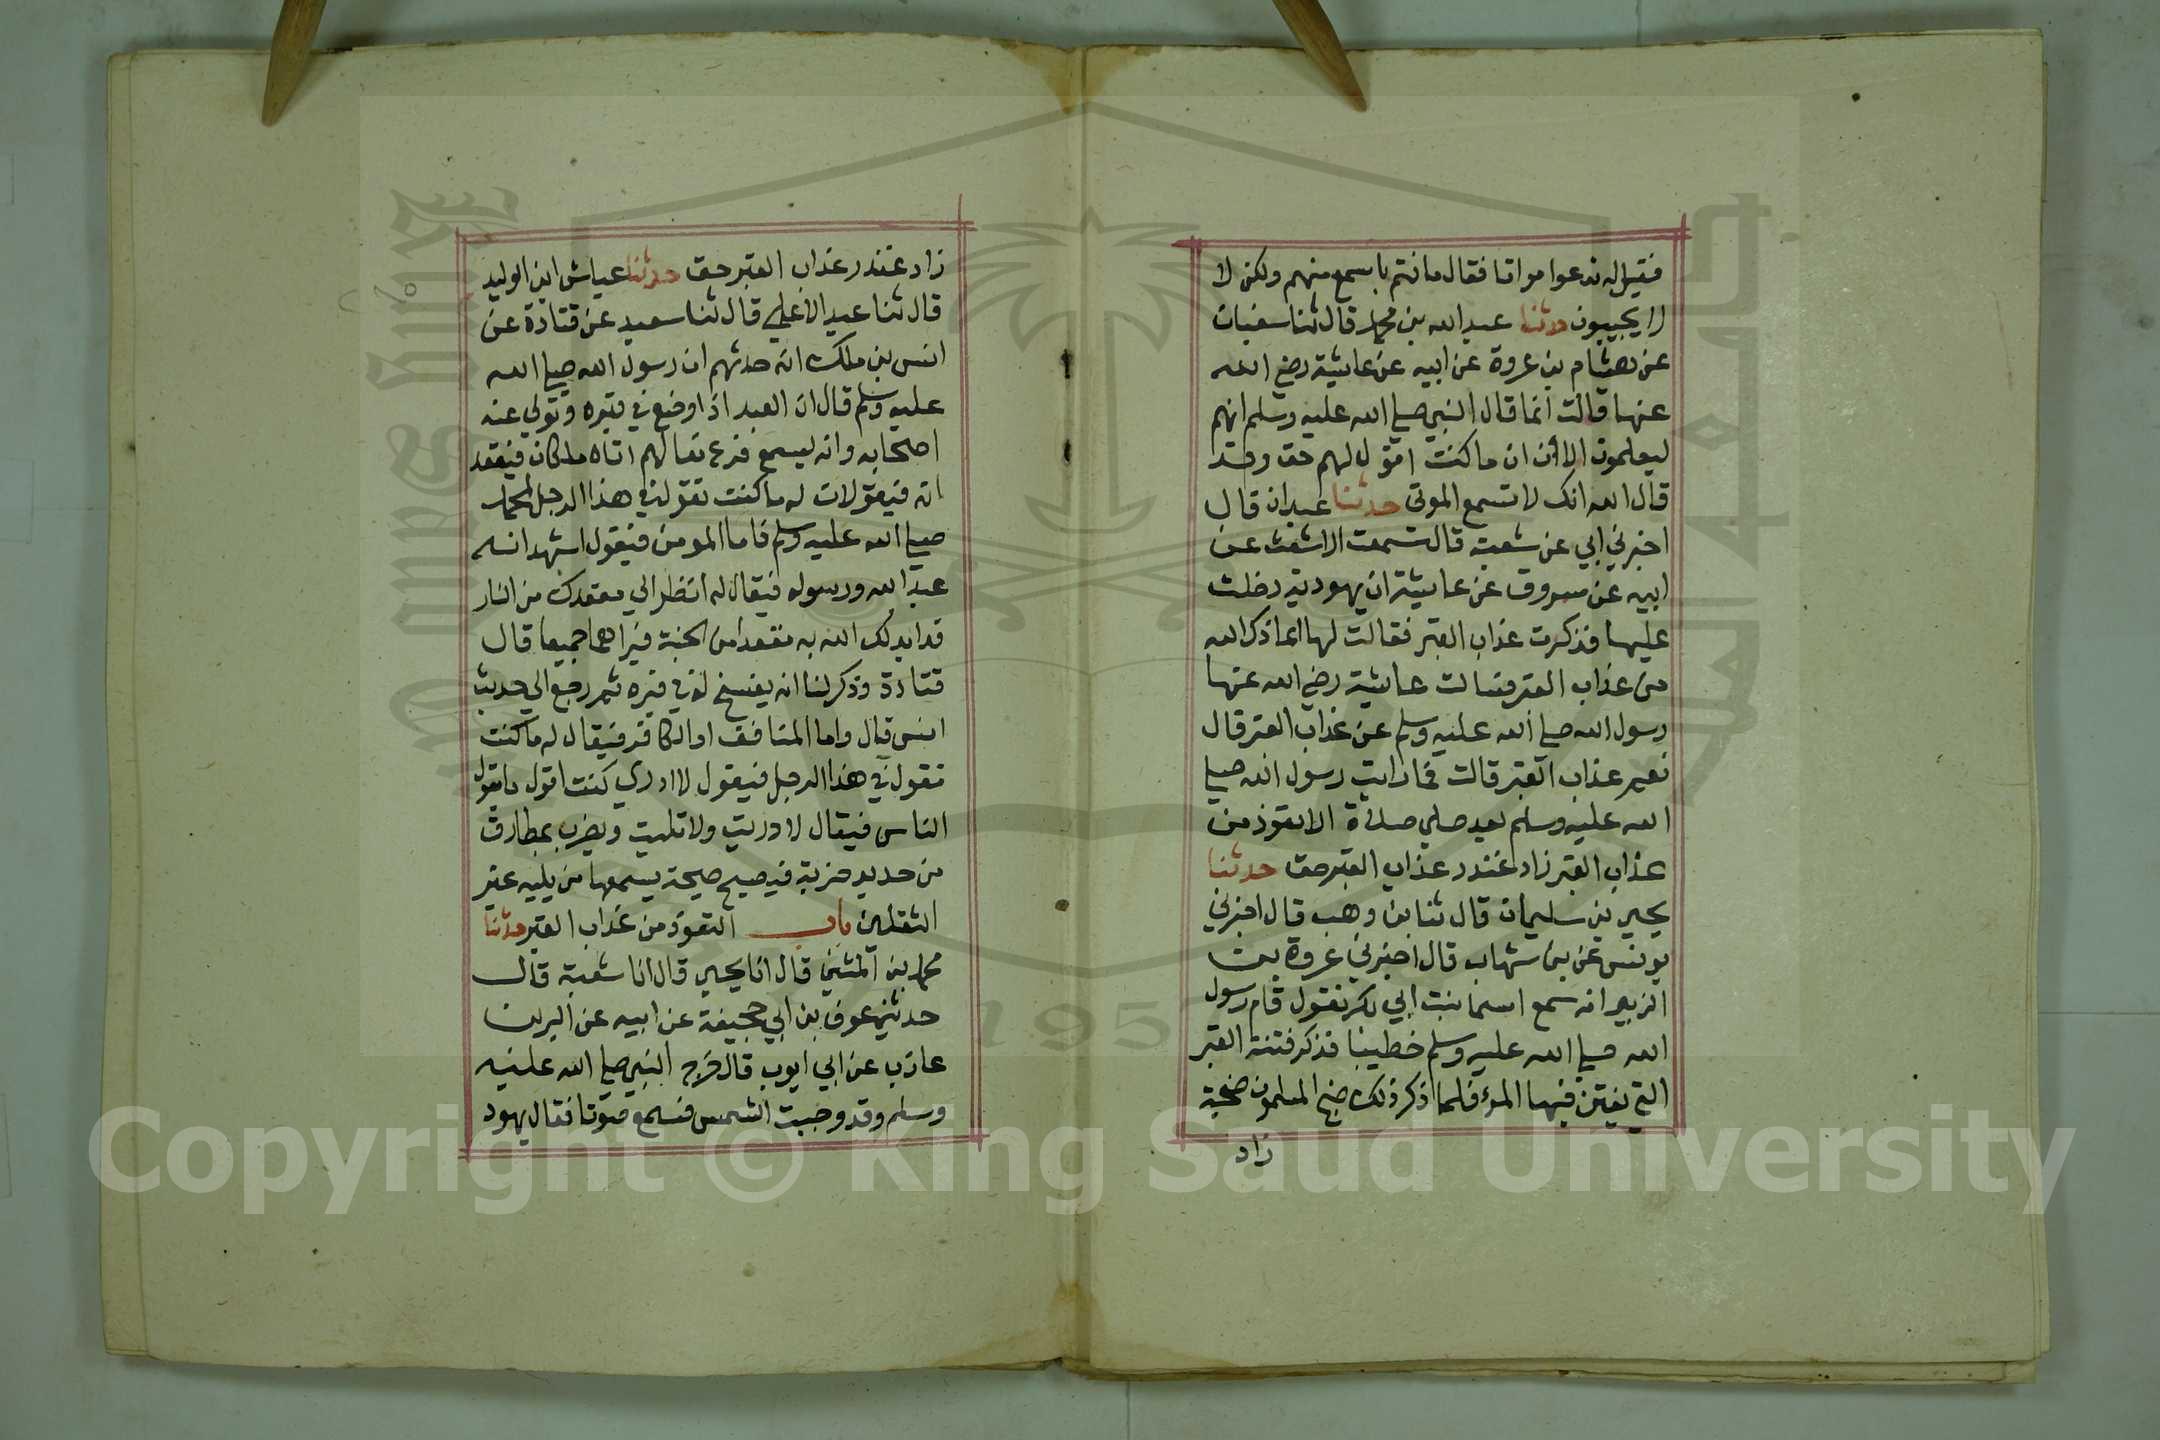 فقيل له تدعوا مواتا فقال ما انتم باسمع منهم ولكن لا
لا يجيبون حدثنا عبد الله بن محمد قال ثنا سفيان
عن هشام بن عروة عن ابيه عن عايشة رضي الله
عنها قالت انما قال النبي صلى الله عليه وسلم انهم
ليعلمون الاان ان ما كنت اقول لهم حق وقد
قال الله انك لا تسمع الموتى حدثنا عبدان قال
اخبرني ابي عن شعبة قال سمعت الاشعث عن
ابيه عن مسروق عن عايشة ان يهودية دخلت
عليها فذكرت عذاب القبر فقالت لها اعاذك الله
من عذاب القبر فسالت عايشة رضي الله عنها
رسول الله صلى الله عليه وسلم عن عذاب القبر قال
نعم عذاب القبر قالت فما رايت رسول الله صلى
الله عليه وسلم بعد صلى صلاة الا تعوذ من
عذاب القبر زاد غندر عذاب القبر حق حدثنا
يحيى بن سليمان قال ثنا بن وهب قال اخبرني
يونس عن بن شهاب قال اخبرني عروة بن
الزبير انه سمع اسما بنت ابي بكر تقول قام رسول
الله صلى الله عليه وسلم خطيبا فذكر فتنة القبر
التي يفتتن فيها المرء فلما ذكر ذلك ضج المسلمون ضجة
زاد
زاد غندر عذاب القبر حق حدثنا عياش ابن الوليد
قال ثنا عبد الاعلى قال ثنا سعيد عن قتادة عن
انس بن ملك انه حدثهم ان رسول الله صلى الله
عليه وسلم قال ان العبد اذا وضع في قبره وتولى عنه
اصحابه وانه ليسمع قرع نعالهم اتاه ملكان فيقعد
انه فيقولان له ما كنت تقول في هذا الرجل لمحمد
صلى الله عليه وسلم فاما المومن فيقول اشهد انه
عبد الله ورسوله فيقال له انظر الى مقعدك من النار
قد ابدلك الله به مقعدا من الجنة فيراهما جميعا قال
قتادة وذكر لنا انه يفسح له في قبره ثم رجع الى حديث
انس قال واما المنافق او الكافر فيقال له ما كنت
تقول في هذا الرجل فيقول لا ادري كنت اقول ما يقول
الناس فيقال لا دريت ولا تليت ويضرب بمطارق
من حديد ضربة فيصيح صيحة يسمعها من يليه غير
الثقلين باب التعوذ من عذاب القبر حدثنا
محمد بن المثنى قال انا يحيى قال انا شعبة قال
حدثني عوف بن ابي جحيفة عن ابيه عن البرا بن
عازب عن ابي ايوب قال خرج النبي صلى الله عليه
وسلم وقد وجبت الشمس فسمع صوتا فقال يهود
Copyright © King Saud University
1957